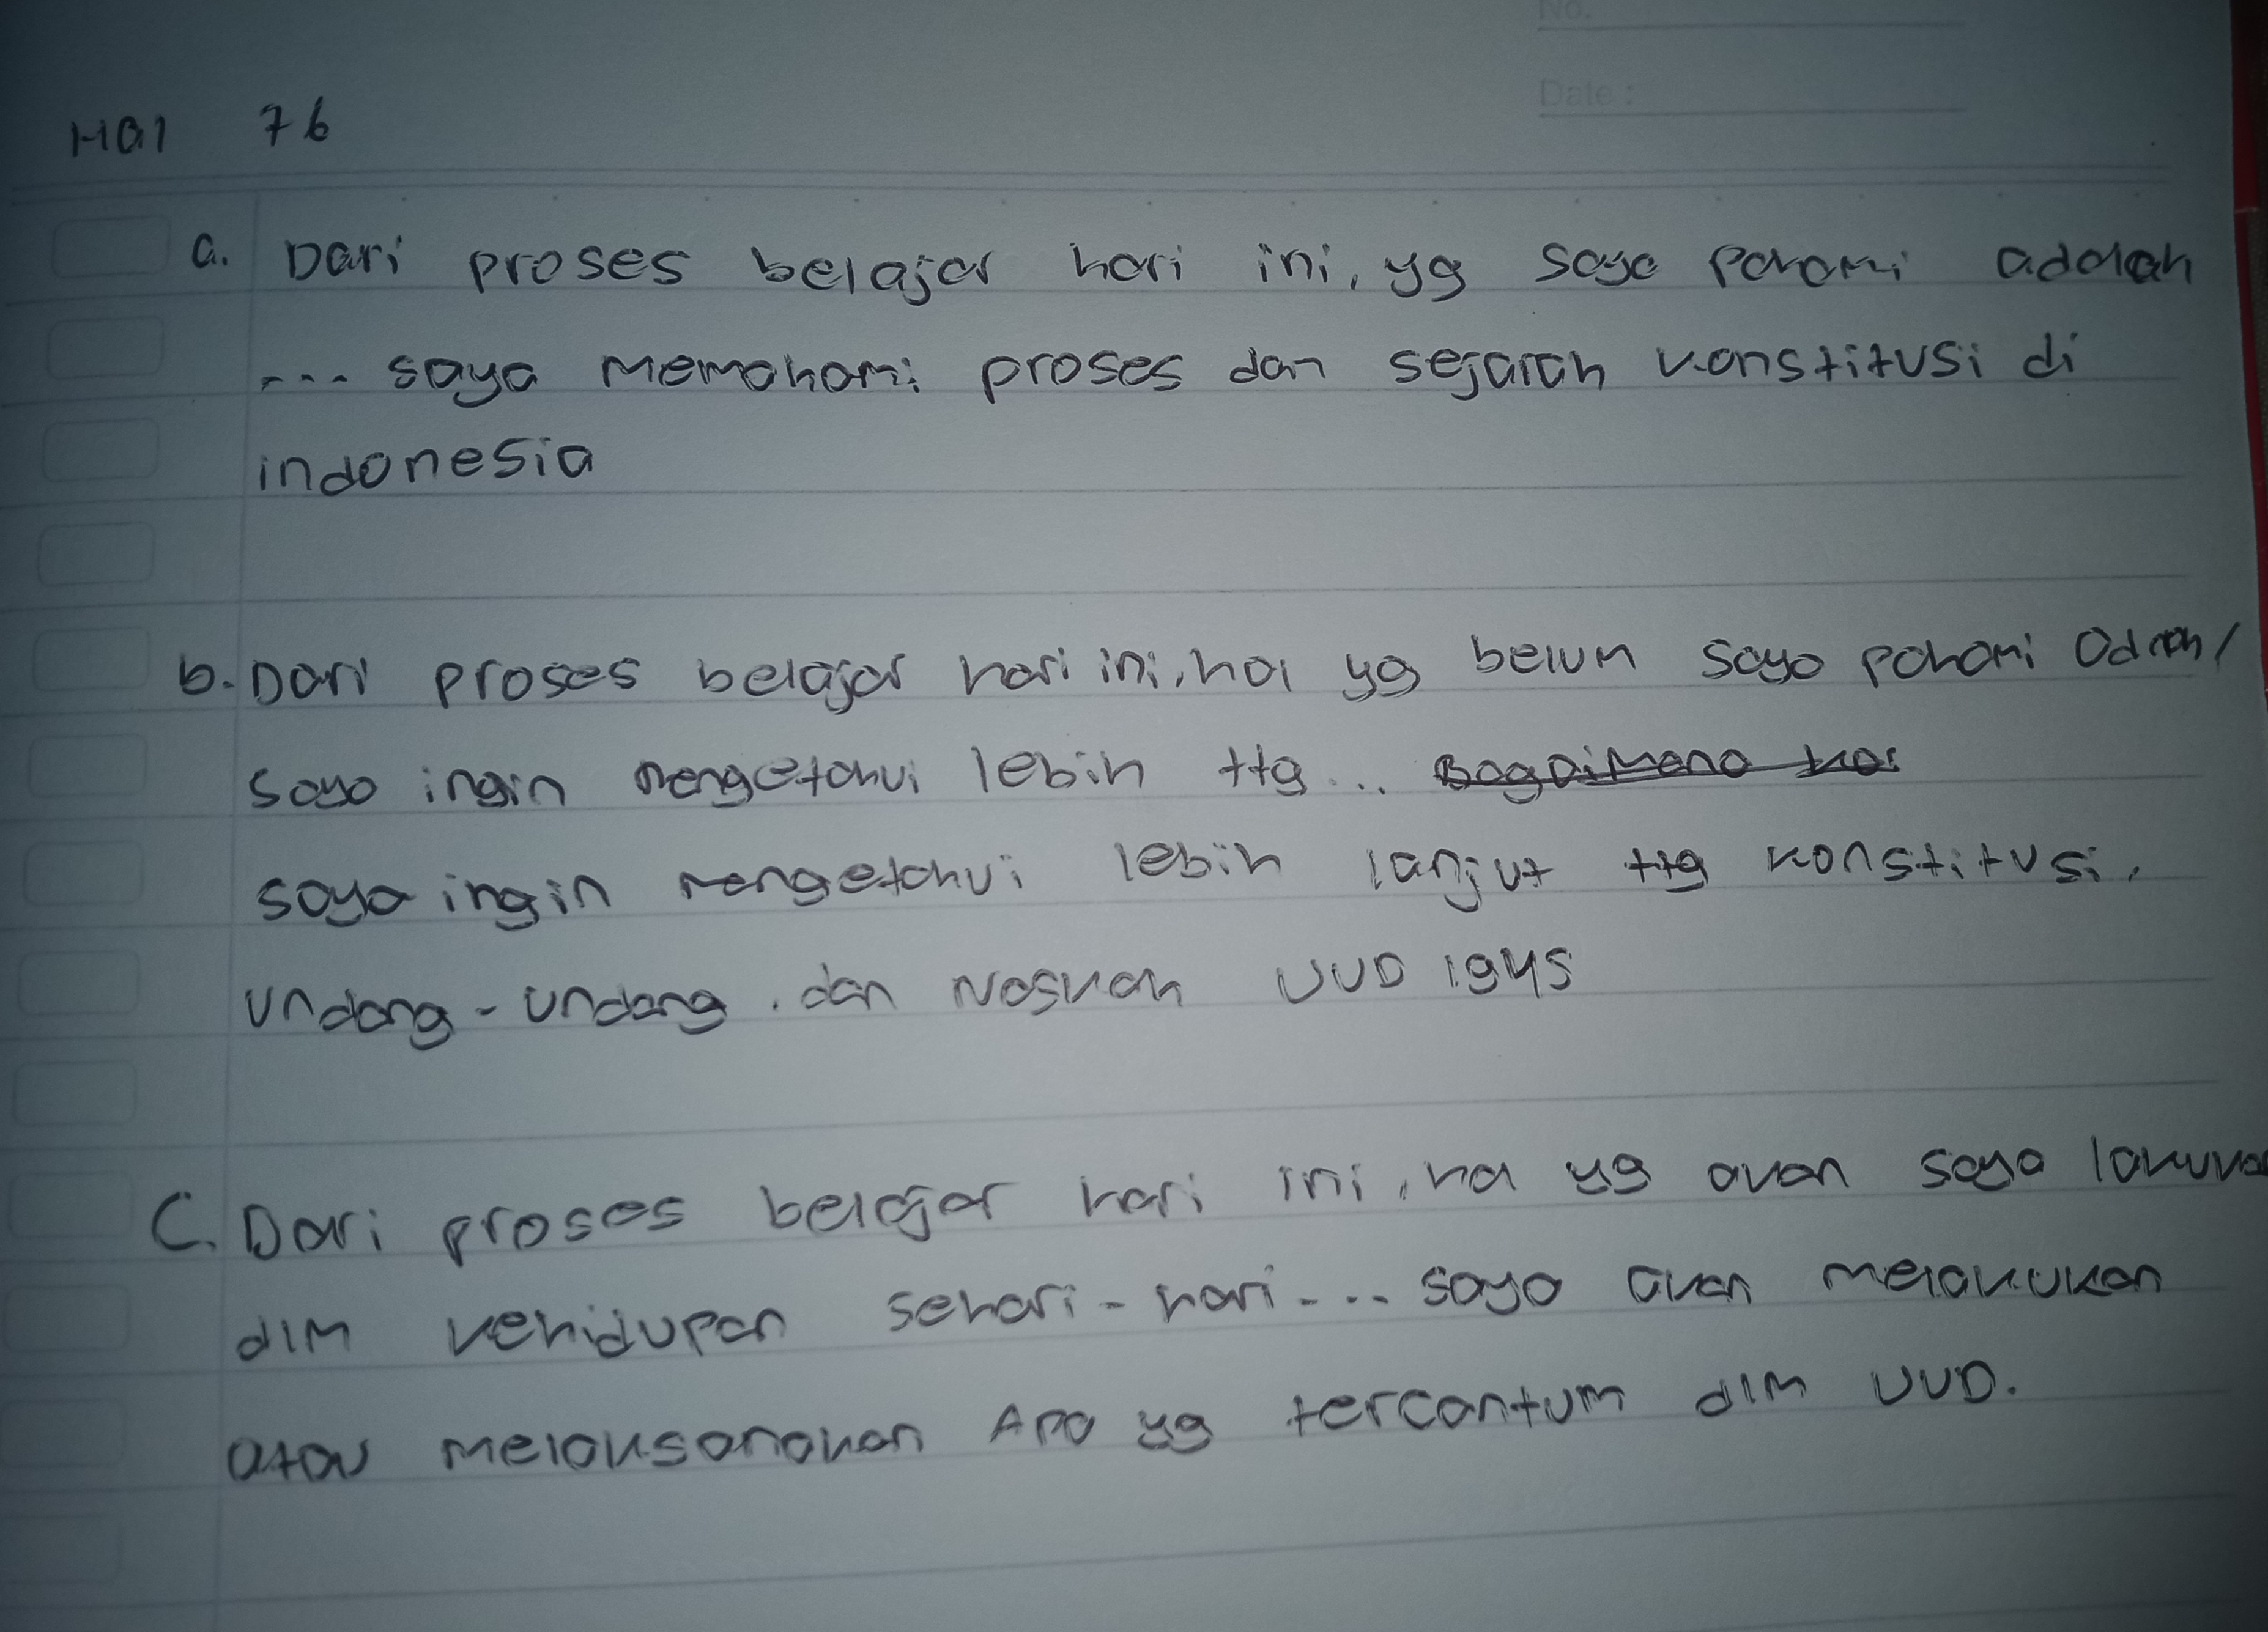 No.
Date :
Hal 76
a. Dari proses belajar hari ini, yg saya pahami adalah
... saya memahami proses dan sejarah konstitusi di
indonesia
b. Dari proses belajar hari ini, hal yg belum saya pahami adalah/
saya ingin mengetahui lebih ttg ... Bagaimana
saya ingin mengetahui lebih lanjut ttg konstitusi,
undang-undang, dan Naskah UUD 1945
C. Dari proses belajar hari ini, hal yg akan saya lakukan
dlm kehidupan sehari-hari... saya akan melakukan
atau melaksanakan Apa yg tercantum dlm UUD.